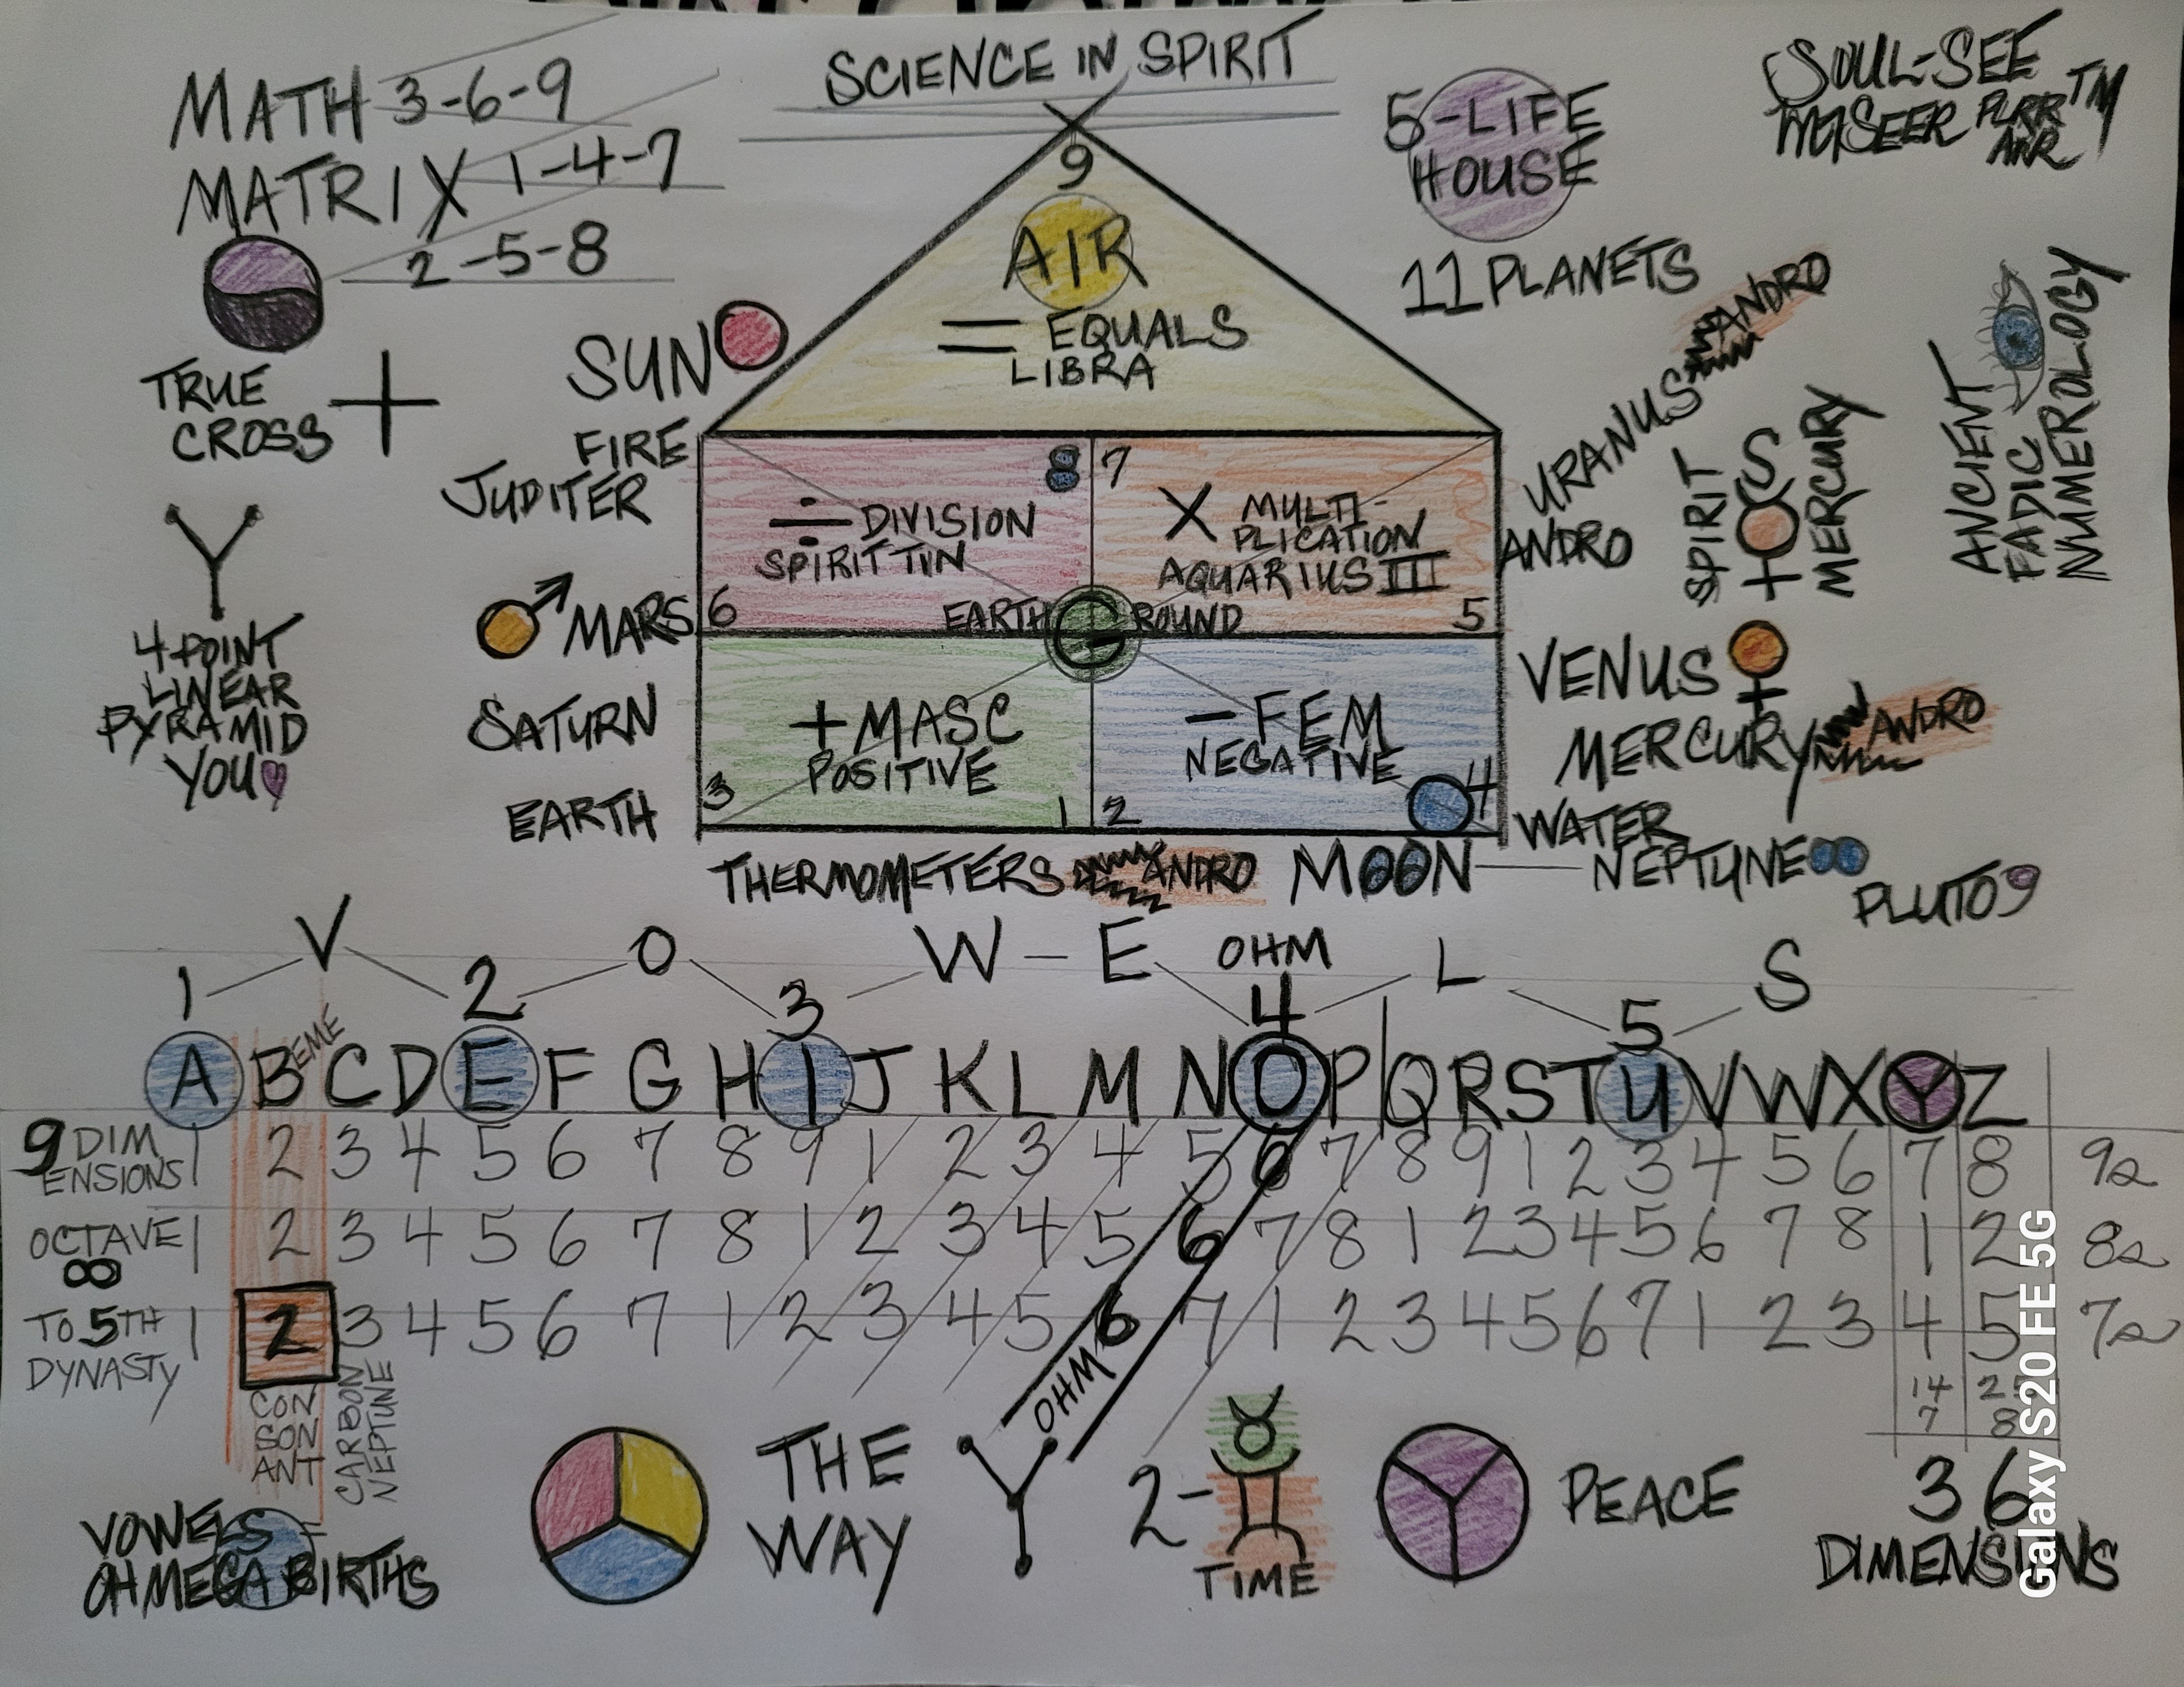 SCIENCE IN SPIRIT
MATH 3-6-9
MATRIX 1-4-7
2-5-8
TRUE
CROSS +
Y
4 POINT
LINEAR
PYRAMID
YOU
5-LIFE
HOUSE
11 PLANETS
SOUL-SEE
TM
ANCIENT
FADIC
NUMEROLOGY
SUN
FIRE
JUDITER
MARS
SATURN
EARTH
9
AIR
= EQUALS
LIBRA
8
÷ DIVISION
SPIRIT TIN
6
7
X MULTI-
PLICATION
AQUARIUS III
5
EARTH G ROUND
+ MASC
POSITIVE
3 1
- FEM
NEGATIVE
2 4
URANUS ANDRO
ANDRO
SPIRIT
MERCURY
VENUS
MERCURY ANDRO
WATER
THERMOMETERS ANDRO MOON NEPTUNE
PLUTO 9
V O W-E L S
OHM
1 2 3 4 5
EME
A B C D E F G H I J K L M N O P Q R S T U V W X Y Z
9 DIM
ENSIONS 1 2 3 4 5 6 7 8 9 1 2 3 4 5 6 7 8 9 1 2 3 4 5 6 7 8 9s
OCTAVE 1 2 3 4 5 6 7 8 1 2 3 4 5 6 7 8 1 2 3 4 5 6 7 8 1 2 8s
∞
TO 5TH
DYNASTY 1 2 3 4 5 6 7 1 2 3 4 5 6 7 1 2 3 4 5 6 7 1 2 3 4 5 7s
14
7 8
CON
SON
ANT
CARBON
NEPTUNE
OHM
VOWELS
OHMEGA BIRTHS
THE
WAY
Y
2-
TIME
PEACE
36
DIMENSIONS
Galaxy S20 FE 5G